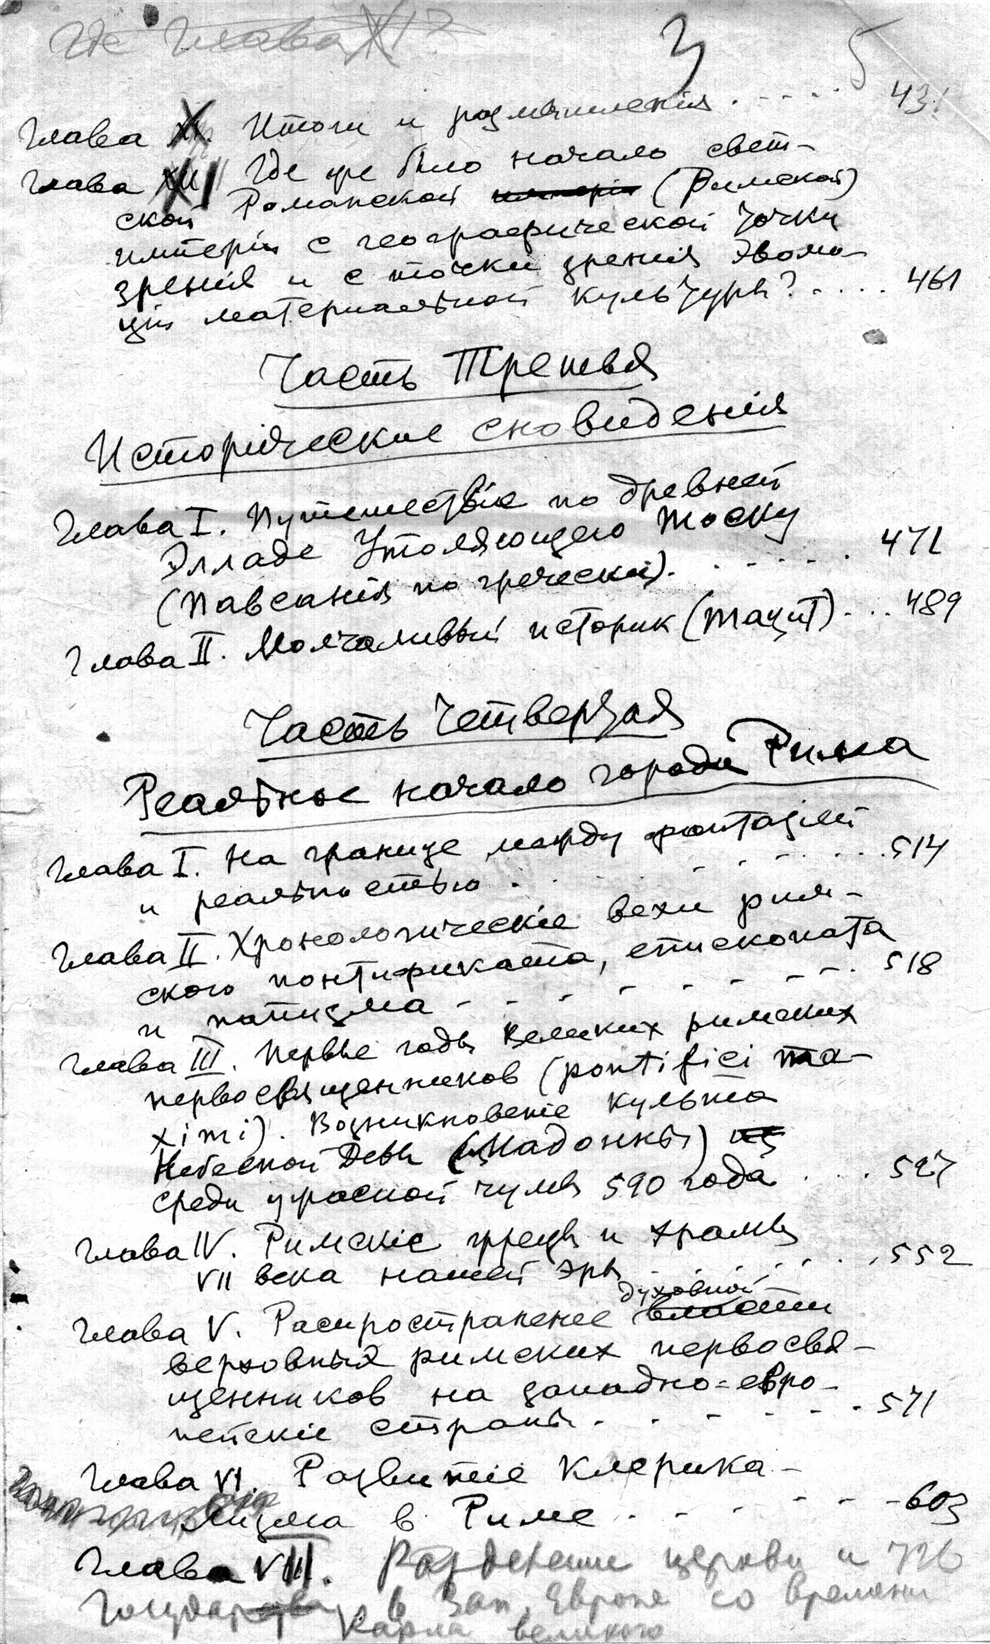 Где Глава XI?
3 5
Глава XI. Итоги и размышленія . - - - - 431
Глава XII Где же было начало свет-
ской Романской имперіи (Римской)
имперіи с географической точки
зренія и с точки зренія эволю-
ціи матеріальной культуры? . . . . 461
Часть Третья
Историческіе сновиденія
Глава I. Путешествіе по древней
Элладе Утоляющего Тоску
(Павсанія по гречески). . . . . . 471
Глава II. Молчаливый историк (Тацит) . . . 489
Часть Четвертая
Реальное начало города Рима
Глава I. На границе между фантазіей
и реальностью . . . . . . . . 514
Глава II. Хронологическіе вехи рим-
ского понтификата, епископата
и папизма - - - - - - - - 518
Глава III. Первые годы Великих римских
первосвященников (pontifici ma-
ximi). Возникновеніе культа
Небесной Девы (Мадонны) из
среди ужасной чумы 590 года . . . 527
Глава IV. Римскіе жрецы и храмы
VII века нашей эры . . . . . . 552
духовной
Глава V. Распространеніе власти
верховных римских первосвя-
щенников на западно=евро-
пейскіе страны . . . . . . . 571
Глава VI. Развитіе Клерика-
лизма в Риме . - - - - - 603
Глава VII. Разделение церкви и 726
Государства в Зап. Европе со времени
Карла великого